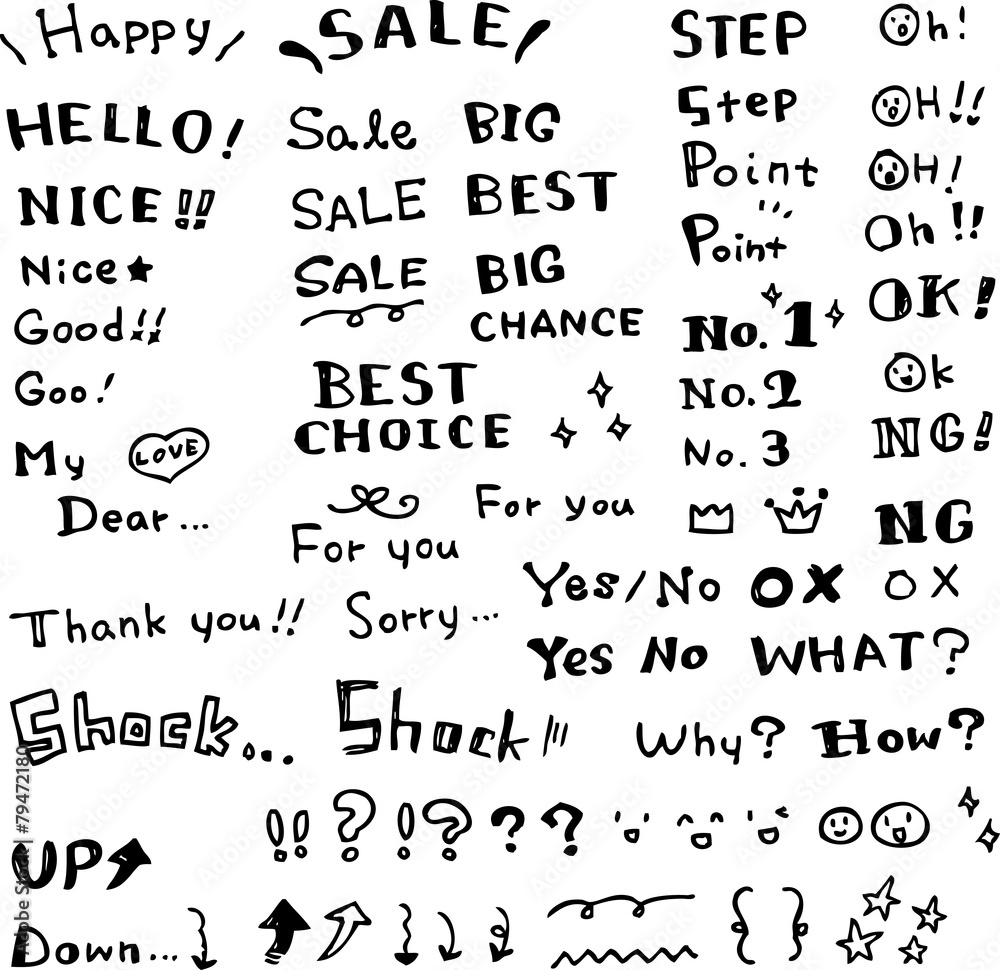 Happy
SALE
STEP
Oh!
HELLO!
Sale
BIG
Step
OH!!
NICE!!
SALE
BEST
Point
OH!
Nice★
SALE
BIG
CHANCE
Point
Oh!!
Good!!
BEST
CHOICE
No.1
OK!
Goo!
No.2
Ok
My LOVE
No.3
NG!
Dear...
For you
For you
NG
Thank you!!
Sorry...
Yes/No
O X
O X
Yes No
WHAT?
Shock...
Shock
Why?
How?
!! ? !? ? ?
UP
Down...
{ }
Adobe Stock | #79472180